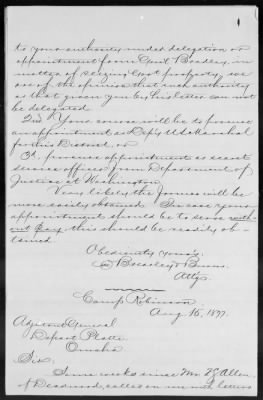 to your authority under delegation or
appointment from Capt Bradley, in
matter of seizing Govt property, we
are of the opinion that such authority
as that given you by his letter can not
be delegated.
2nd Your course will be to procure
an appointment as Depty U.S. Marshal
for this District, or
3d. procure appointment as secret
service officer from Department of
Justice at Washington.
Very likely the former will be
more easily obtained. In case your
appointment should be to serve with-
out pay, this should be readily ob-
tained.
Obediently yours,
Attys.
Camp Robinson
Aug 16, 1877.
Adjutant General
Depart Platte
Omaha
Sir:
Some weeks since Mr. Allen
of Deadwood, called on me with letters